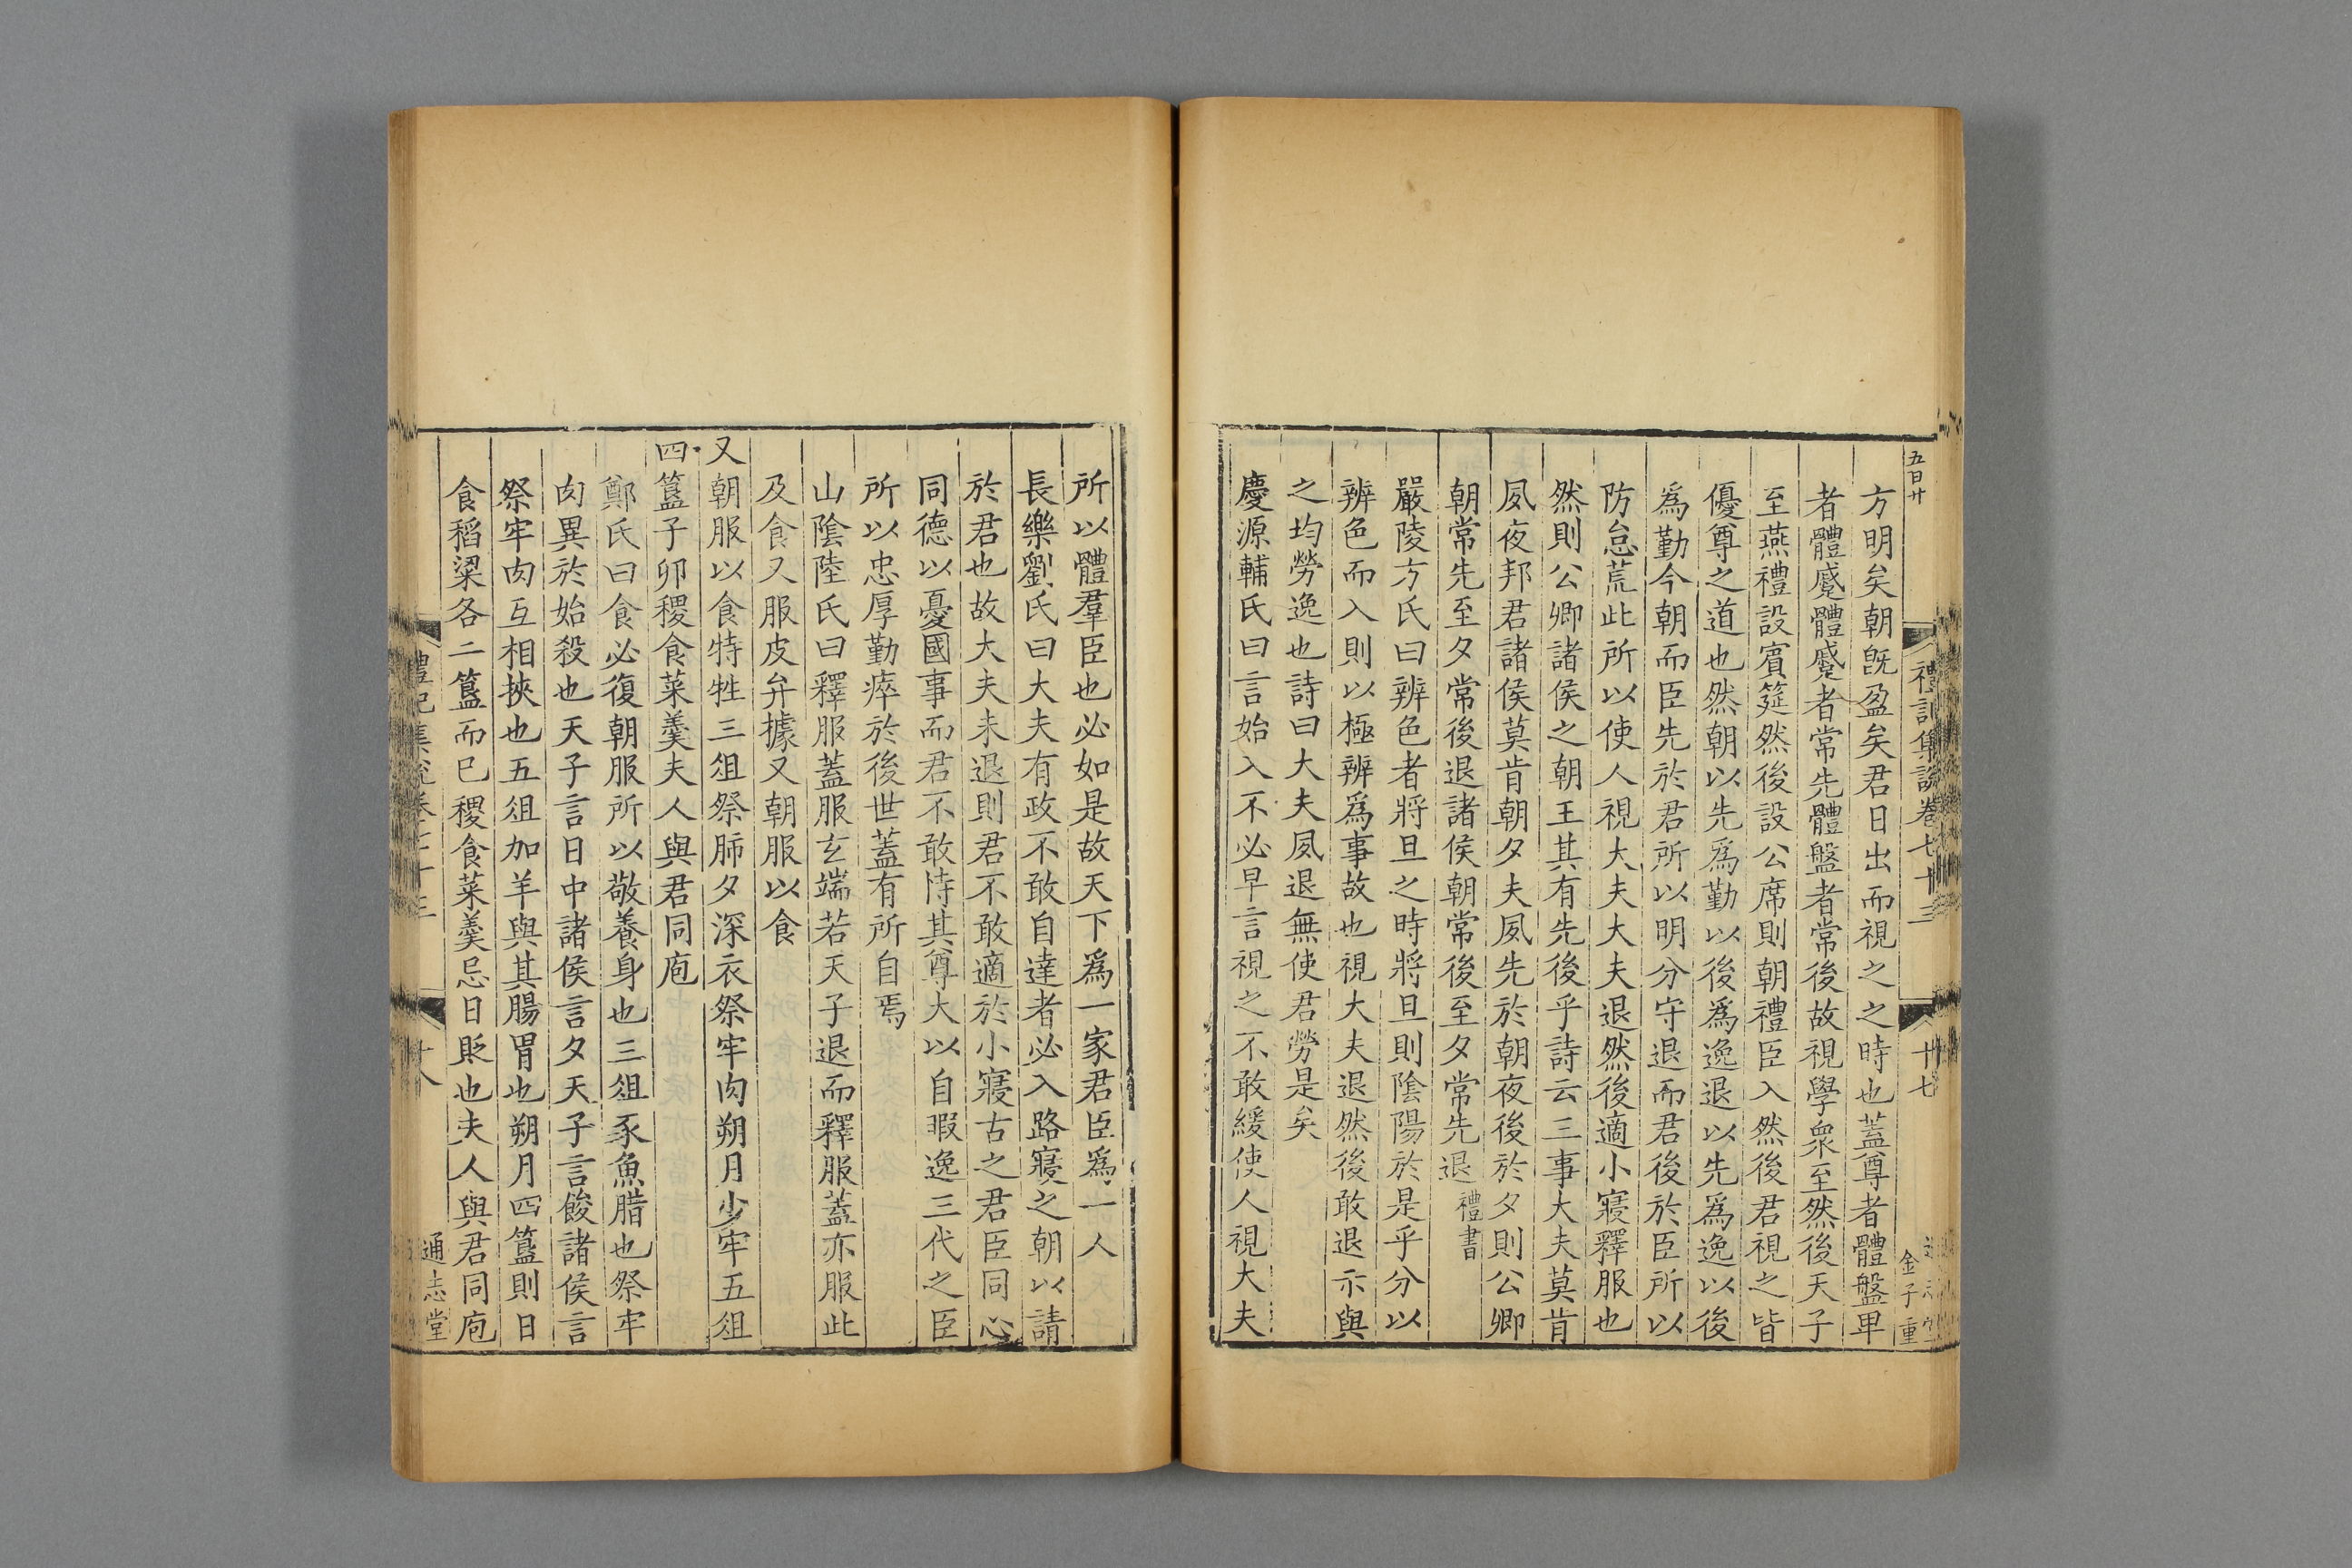 五百廿
禮記集說卷七十三
十七
金子重
方明矣朝旣盈矣君日出而視之之時也蓋尊者體盤卑
者體蹙體蹙者常先體盤者常後故視學衆至然後天子
至燕禮設賓筵然後設公席則朝禮臣入然後君視之皆
優尊之道也然朝以先爲勤以後爲逸退以先爲逸以後
爲勤今朝而臣先於君所以明分守退而君後於臣所以
防怠荒此所以使人視大夫大夫退然後適小寢釋服也
然則公卿諸侯之朝王其有先後乎詩云三事大夫莫肯
夙夜邦君諸侯莫肯朝夕夫夙先於朝夜後於夕則公卿
朝常先至夕常後退諸侯朝常後至夕常先退禮書
嚴陵方氏曰辨色者將旦之時將旦則陰陽於是乎分以
辨色而入則以極辨爲事故也視大夫退然後敢退示與
之均勞逸也詩曰大夫夙退無使君勞是矣
慶源輔氏曰言始入不必早言視之不敢緩使人視大夫
所以體羣臣也必如是故天下爲一家君臣爲一人
長樂劉氏曰大夫有政不敢自達者必入路寢之朝以請
於君也故大夫未退則君不敢適於小寢古之君臣同心
同德以憂國事而君不敢恃其尊大以自暇逸三代之臣
所以忠厚勤瘁於後世蓋有所自焉
山陰陸氏曰釋服蓋服玄端若天子退而釋服蓋亦服此
及食又服皮弁據又朝服以食
又朝服以食特牲三俎祭肺夕深衣祭牢肉朔月少牢五俎
四簋子卯稷食菜羹夫人與君同庖
鄭氏曰食必復朝服所以敬養身也三俎豕魚腊也祭牢
肉異於始殺也天子言日中諸侯言夕天子言餕諸侯言
祭牢肉互相挾也五俎加羊與其腸胃也朔月四簋則日
食稻粱各二簋而已稷食菜羹忌日貶也夫人與君同庖
禮記集說卷七十三
十八
通志堂